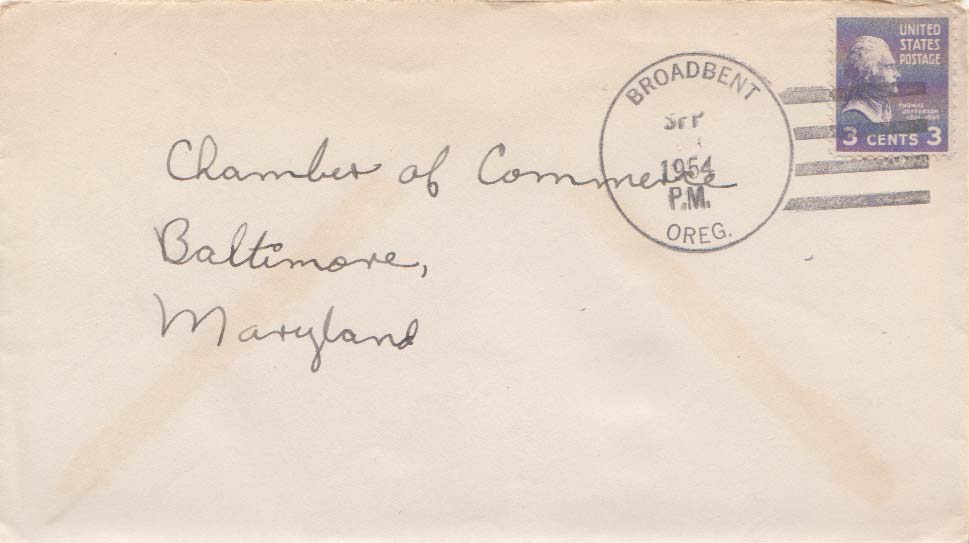 UNITED
STATES
POSTAGE
THOMAS
JEFFERSON
3 CENTS 3
BROADBENT
SEP
1954
P.M.
OREG.
Chamber of Commerce
Baltimore,
Maryland